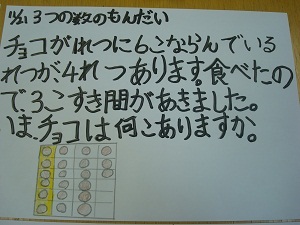 11/21 3つの数のもんだい
チョコが1れつに6こならんでいる
れつが4れつあります。食べたの
で、3こすき間があきました。
いま、チョコは何こありますか。